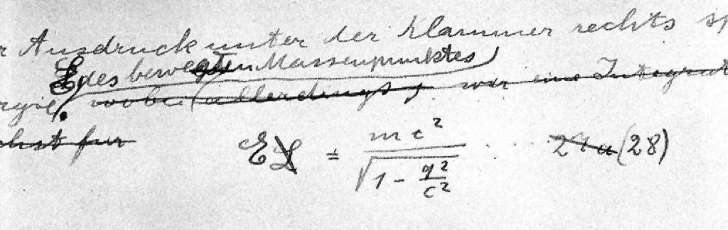 Ausdruck unter der Klammer rechts
E des bewegten Massenpunktes
wobei (allerdings, war eine Integrat
chst für
E = mc² / √(1 - q²/c²) . . . (28)